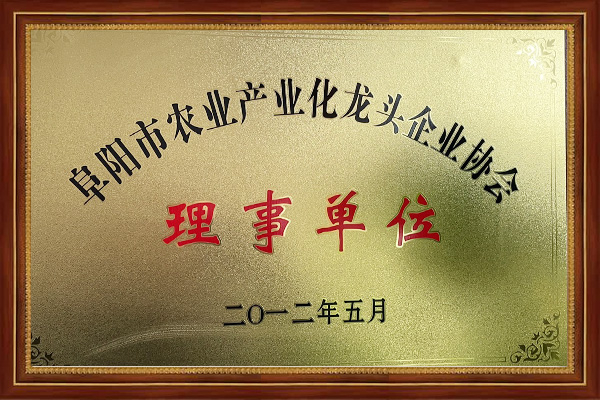 阜阳市农业产业化龙头企业协会
理事单位
二〇一二年五月